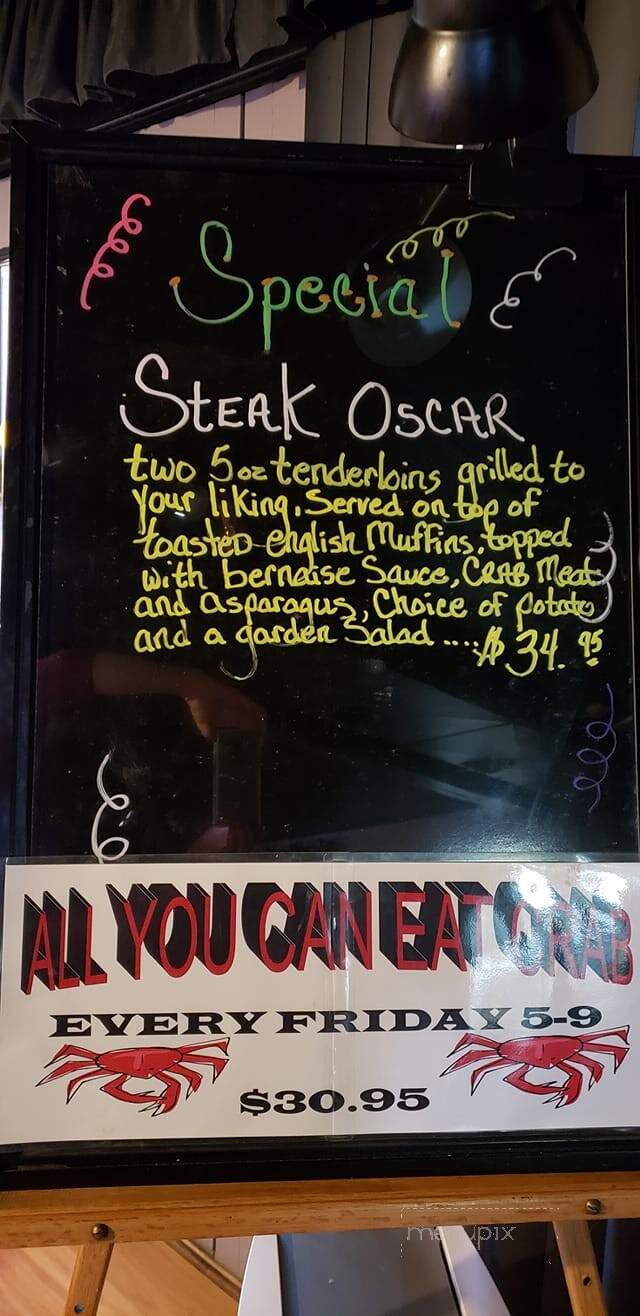 Special
STEAK OSCAR
two 5oz tenderloins grilled to
your liking. Served on top of
toasted english Muffins, topped
with bernaise Sauce, CRAB Meat
and asparagus, Choice of potato
and a garden Salad ....$34.95
ALL YOU CAN EAT CRAB
EVERY FRIDAY 5-9
$30.95
menupix